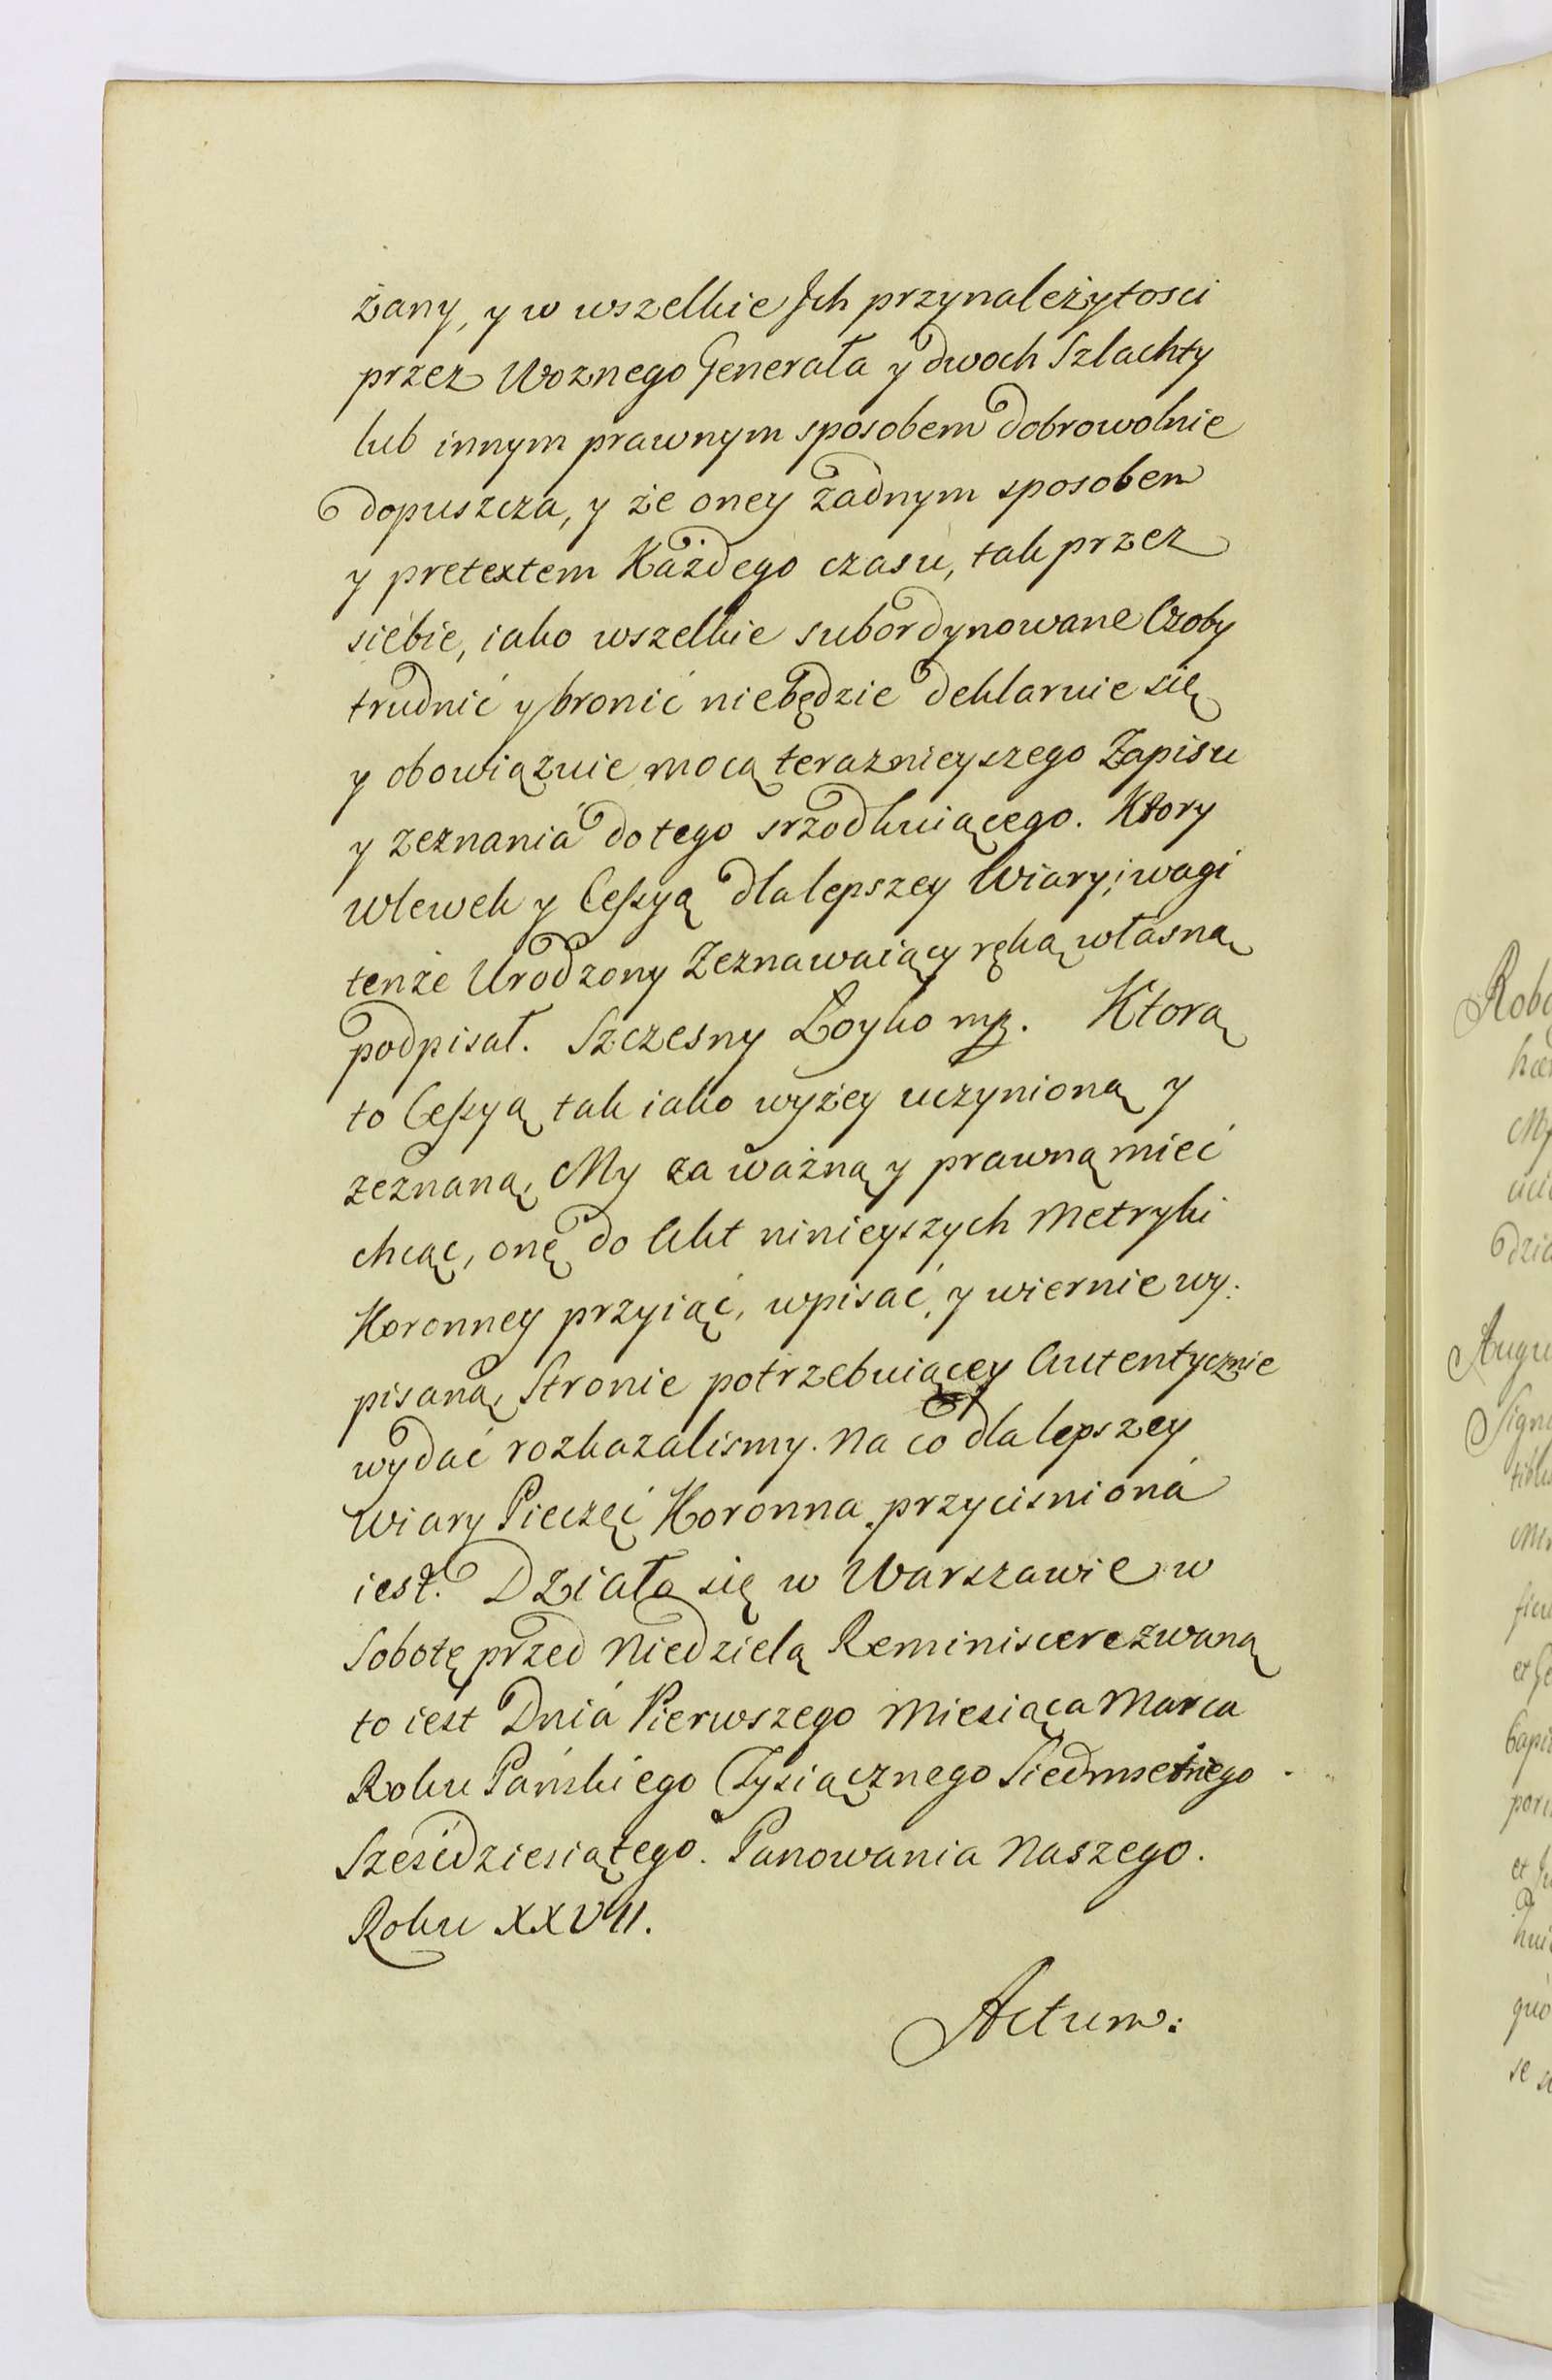 żany, y w wszelkie Jch przynależytosci
przez Woznego Generała y dwoch Szlachty
lub innym prawnym sposobem dobrowolnie
dopuszcza, y że oney żadnym sposobem
y pretextem Każdego czasu, tak przez
siebie, iako wszelkie subordynowane Osoby
trudnić y bronić niebędzie deklaruie się
y obowiązuie mocą teraznieyszego Zapisu
y zeznania do tego srzodkuiącego. Ktory
wlewek y Cessyą dla lepszey Wiary, i wagi
tenże Urodzony Zeznawaiący ręką własną
podpisał. Szczesny Łoyko mp. Ktorą
to Cessyą tak iako wyżey uczynioną y
zeznaną, My za ważną y prawną mieć
chcąc, onę do Akt ninieyszych Metryki
Koronney przyiąć, wpisać, y wiernie wy:
pisaną, Stronie potrzebuiącey Autentycznie
wydać rozkazalismy. Na co dla lepszey
Wiary Pieczęć Koronna przycisniona
iest. Działo się w Warszawie w
Sobotę przed Niedzielą Reminiscere zwaną
to iest Dnia Pierwszego Miesiąca Marca
Roku Pańskiego Tysiącznego Siedmsetnego
Sześćdziesiątego. Panowania Naszego.
Roku XXVII.
Actum: